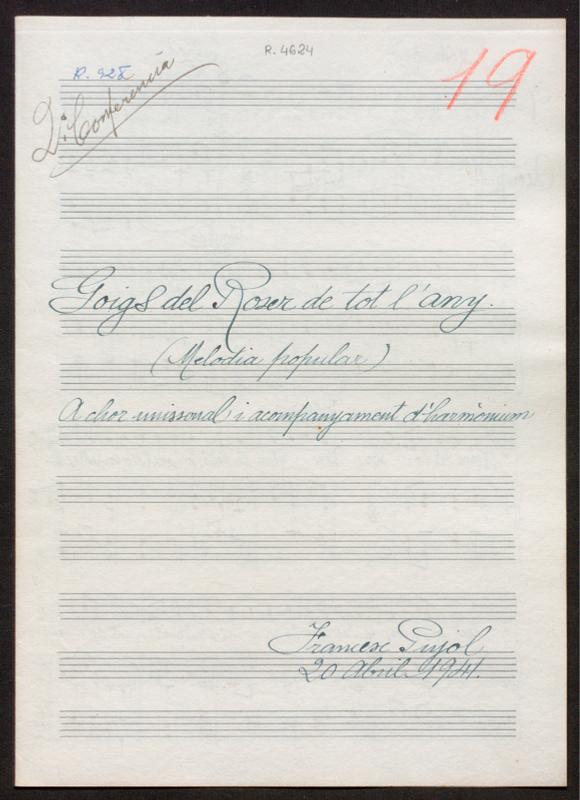 R. 4624
R. 928
19
2ª Conferència
Goigs del Roser de tot l'any.
(Melodia popular)
A chor unissonal i acompanyament d'harmònium
Francesc Pujol
20 Abril 1941.